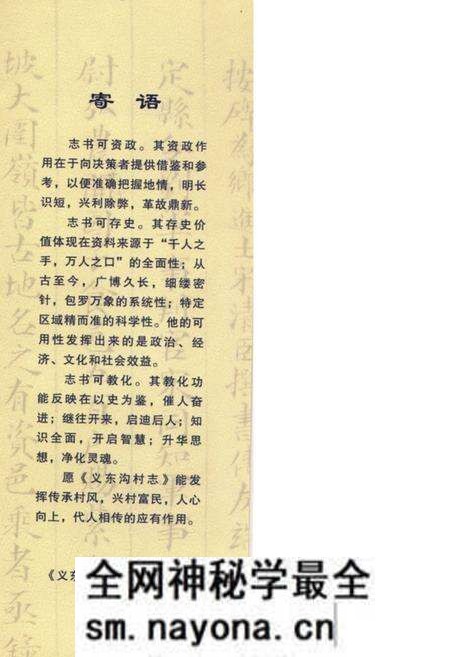 寄语
志书可资政。其资政作
用在于向决策者提供借鉴和参
考，以便准确把握地情，明长
识短，兴利除弊，革故鼎新。
志书可存史。其存史价
值体现在资料来源于“千人之
手，万人之口”的全面性；从
古至今，广博久长，细缕密
针，包罗万象的系统性；特定
区域精而准的科学性。他的可
用性发挥出来的是政治、经
济、文化和社会效益。
志书可教化。其教化功
能反映在以史为鉴，催人奋
进；继往开来，启迪后人；知
识全面，开启智慧；升华思
想，净化灵魂。
愿《义东沟村志》能发
挥传承村风，兴村富民，人心
向上，代人相传的应有作用。
《义东
全网神秘学最全
sm.nayona.cn
坡大围岭皆古地名之有资邑乘者亟录